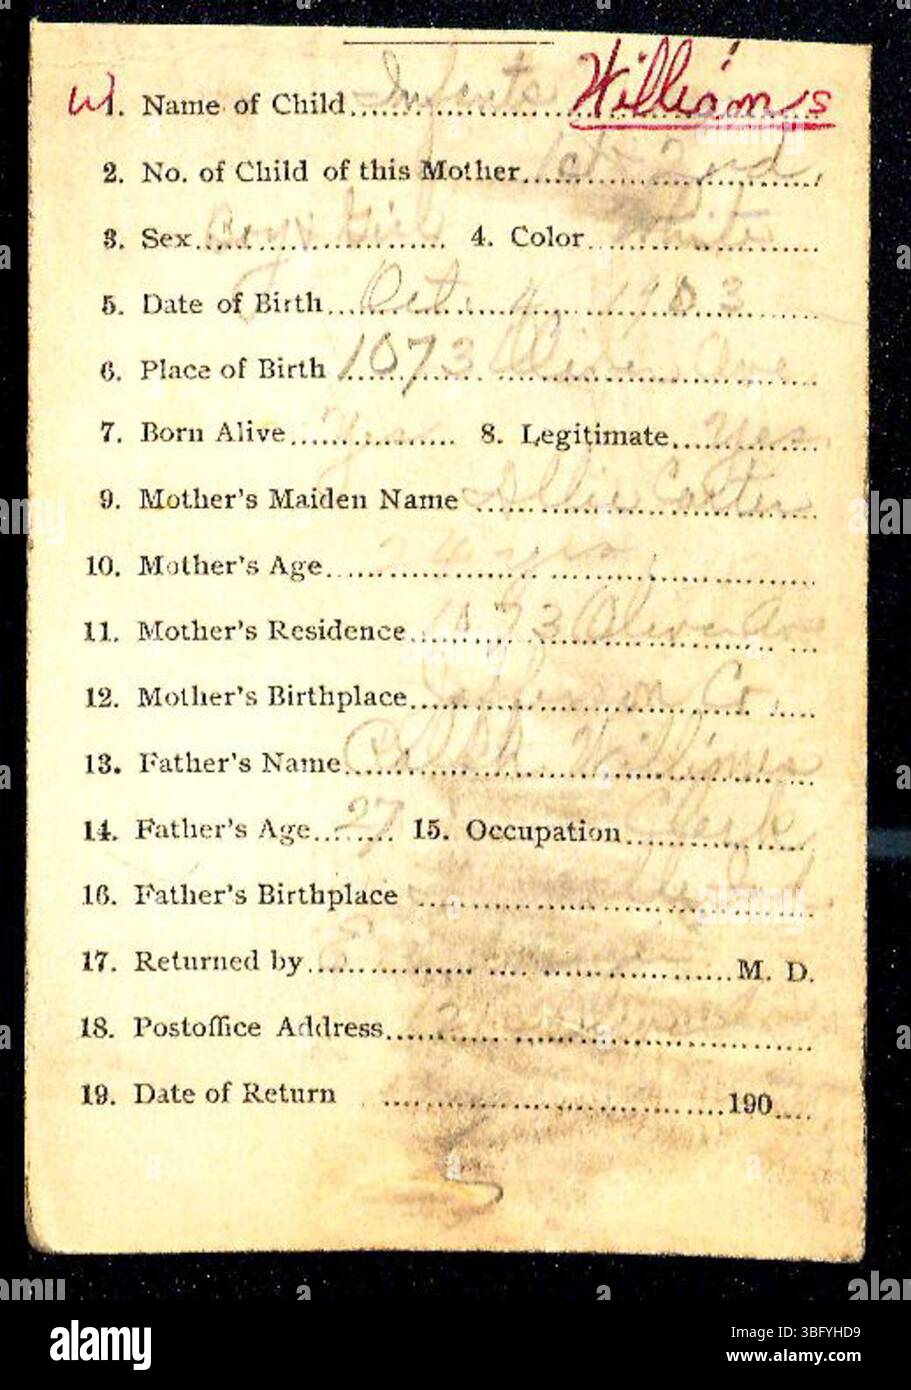 W 1. Name of Child Infants Williams
2. No. of Child of this Mother 1st & 2nd
3. Sex Boy & Girl 4. Color White
5. Date of Birth Oct. 4, 1903
6. Place of Birth 1073 Ave
7. Born Alive Yes 8. Legitimate Yes
9. Mother's Maiden Name Allie Carter
10. Mother's Age 24 yrs
11. Mother's Residence 1073 Olive Av
12. Mother's Birthplace Johnson Co
13. Father's Name Ralph Williams
14. Father's Age 27 15. Occupation Clerk
16. Father's Birthplace
17. Returned by M. D.
18. Postoffice Address
19. Date of Return 190
alamy
Image ID: 3BFYHD9
www.alamy.com